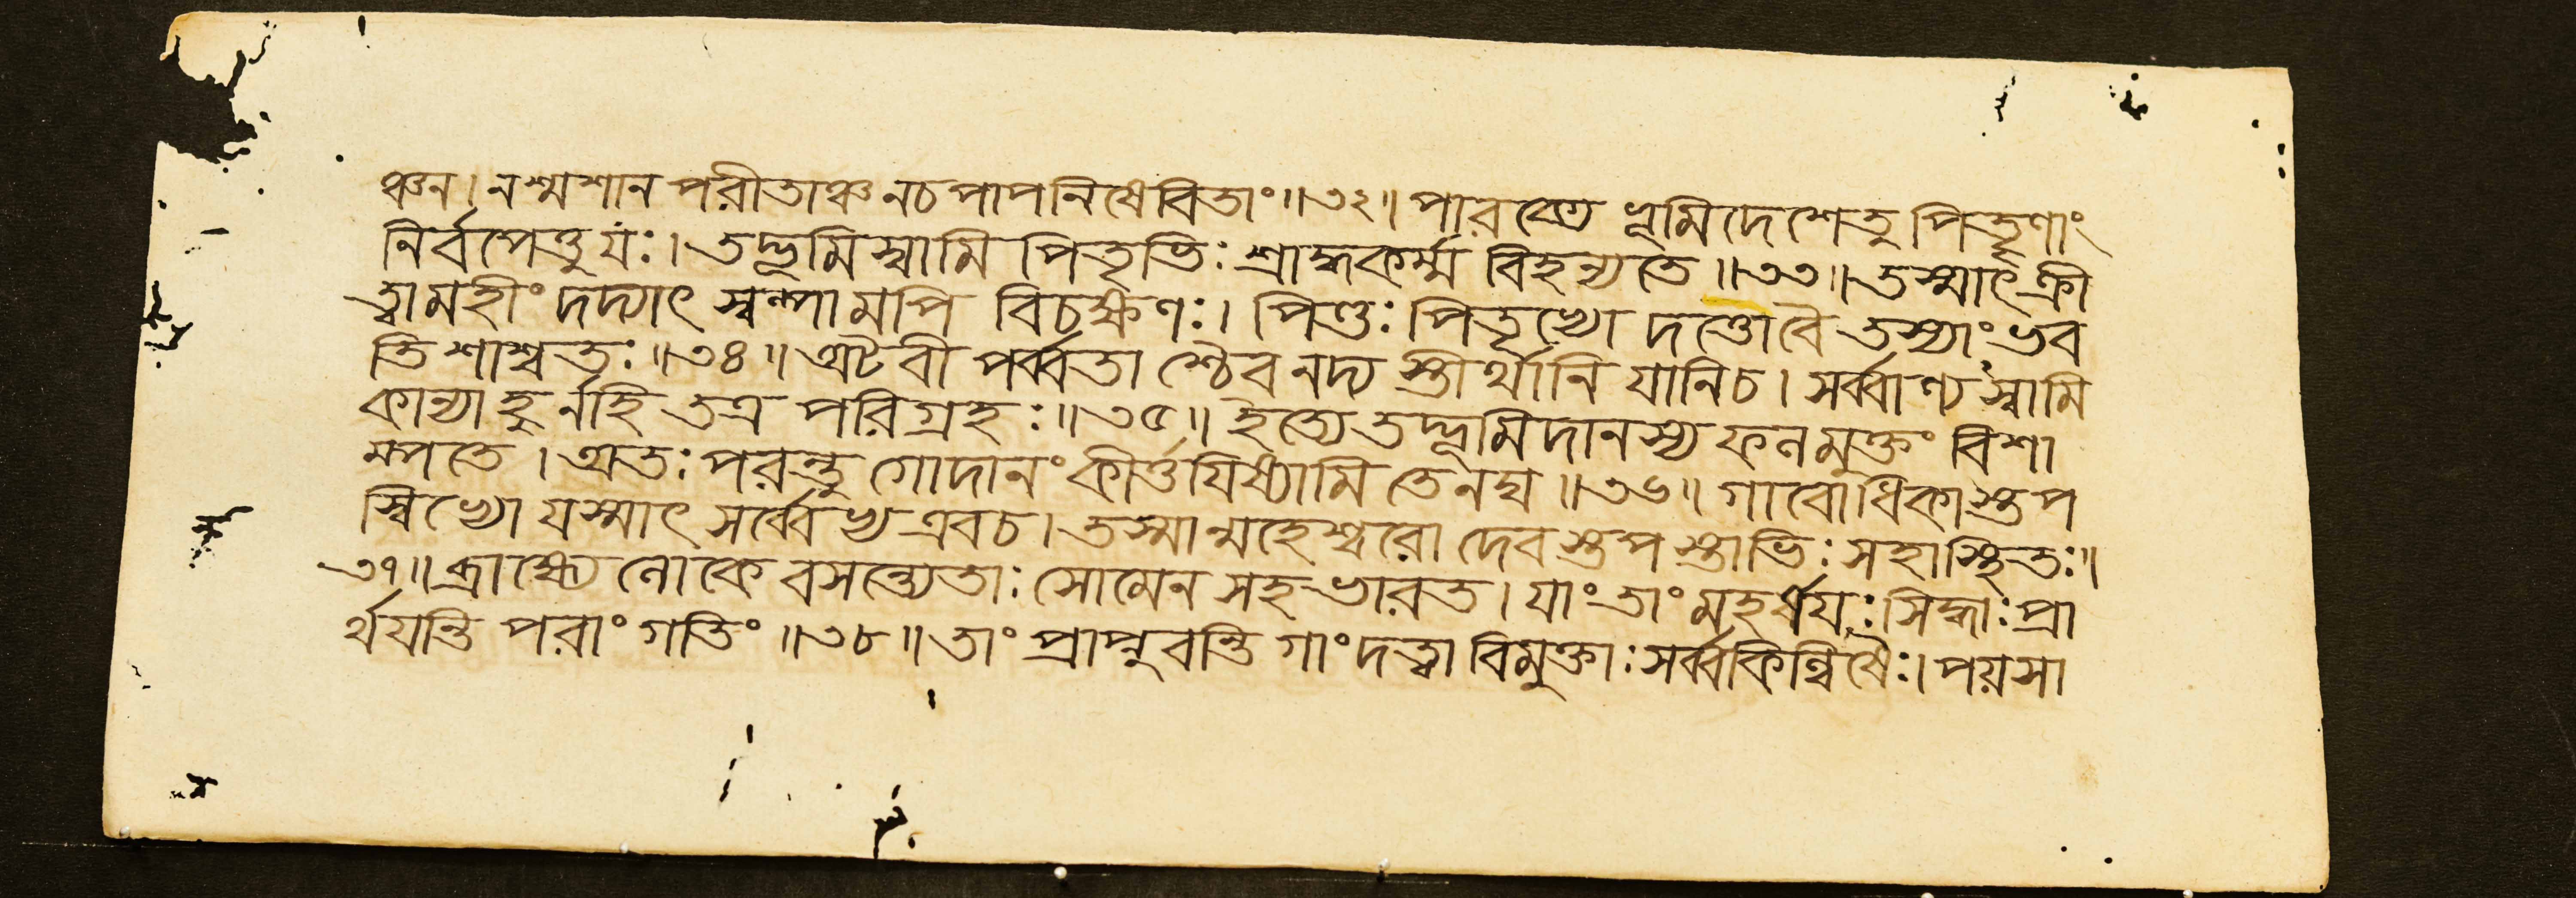 ঞ্চন। ন শ্মশান পরীতাঞ্চ ন চ পাপনিষেবিতাং॥৩২॥ পারক্যে ভূমিদেশে তু পিতৄণাং
নির্বপেত্তু যঃ। তদ্ভূমিস্বামি পিতৃভিঃ শ্রাদ্ধকর্ম্ম বিহন্যতে॥৩৩॥ তস্মাৎ ক্রী
ত্বা মহীং দদ্যাৎ স্বল্পামপি বিচক্ষণঃ। পিণ্ডঃ পিতৃভ্যো দত্তো বৈ তস্যাং ভব
তি শাশ্বতঃ॥৩৪॥ অটবী পর্ব্বতাশ্চৈব নদ্যস্তীর্থানি যানি চ। সর্ব্বাণ্যস্বামি
কান্যাহুর্নহি তত্র পরিগ্রহঃ॥৩৫॥ ইত্যেতদ্ভূমিদানস্য ফলমুক্তং বিশা
ম্পতে। অতঃ পরন্তু গোদানং কীর্ত্তয়িষ্যামি তেনঘ॥৩৬॥ গাবোধিকাস্তপ
স্বিভ্যো যস্মাৎ সর্ব্বেভ্য এব চ। তস্মান্মহেশ্বরো দেবস্তপস্তাভিঃ সহাস্থিতঃ॥
৩৭॥ ব্রাহ্মে লোকে বসন্ত্যেতাঃ সোমেন সহ ভারত। যাং তাং মহর্ষয়ঃ সিদ্ধাঃ প্রা
র্থয়ন্তি পরাং গতিং॥৩৮॥ তাং প্রাপ্নুবন্তি গাং দত্ত্বা বিমুক্তাঃ সর্ব্বকিল্বিষৈঃ। পয়সা